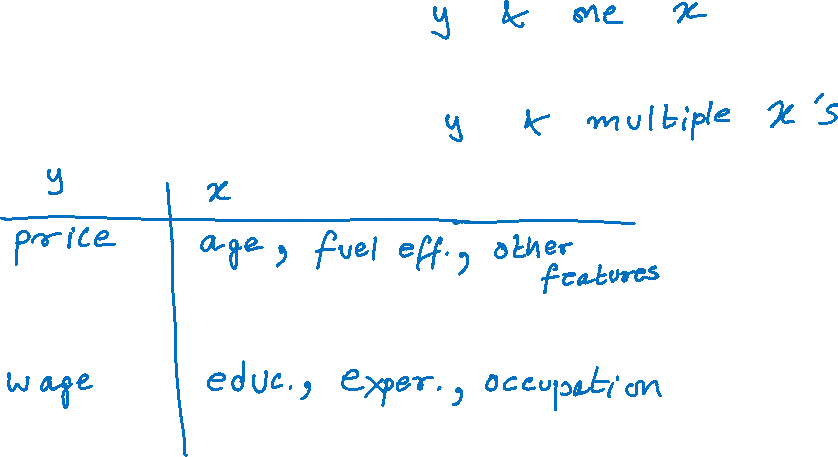 y & one x
y & multiple x's
y x
price age, fuel eff., other
features
wage educ., exper., occupation